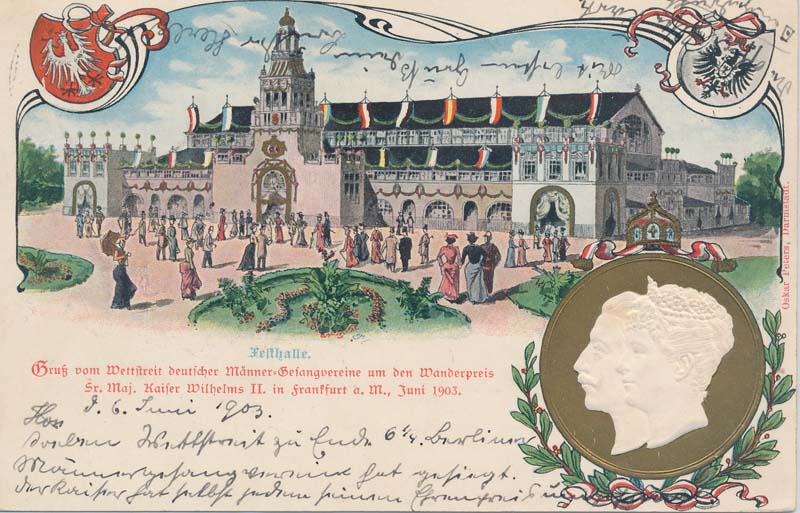 Festhalle.
Gruß vom Wettstreit deutscher Männer-Gesangvereine um den Wanderpreis
Sr. Maj. Kaiser Wilhelms II. in Frankfurt a. M., Juni 1903.
Oskar Peters, Darmstadt.
d. 6. Juni 1903.
soeben Wettstreit zu Ende 6¼. Berliner
Männergesangverein hat gesiegt.
der Kaiser hat selbst jedem seinen Ehrenpreis